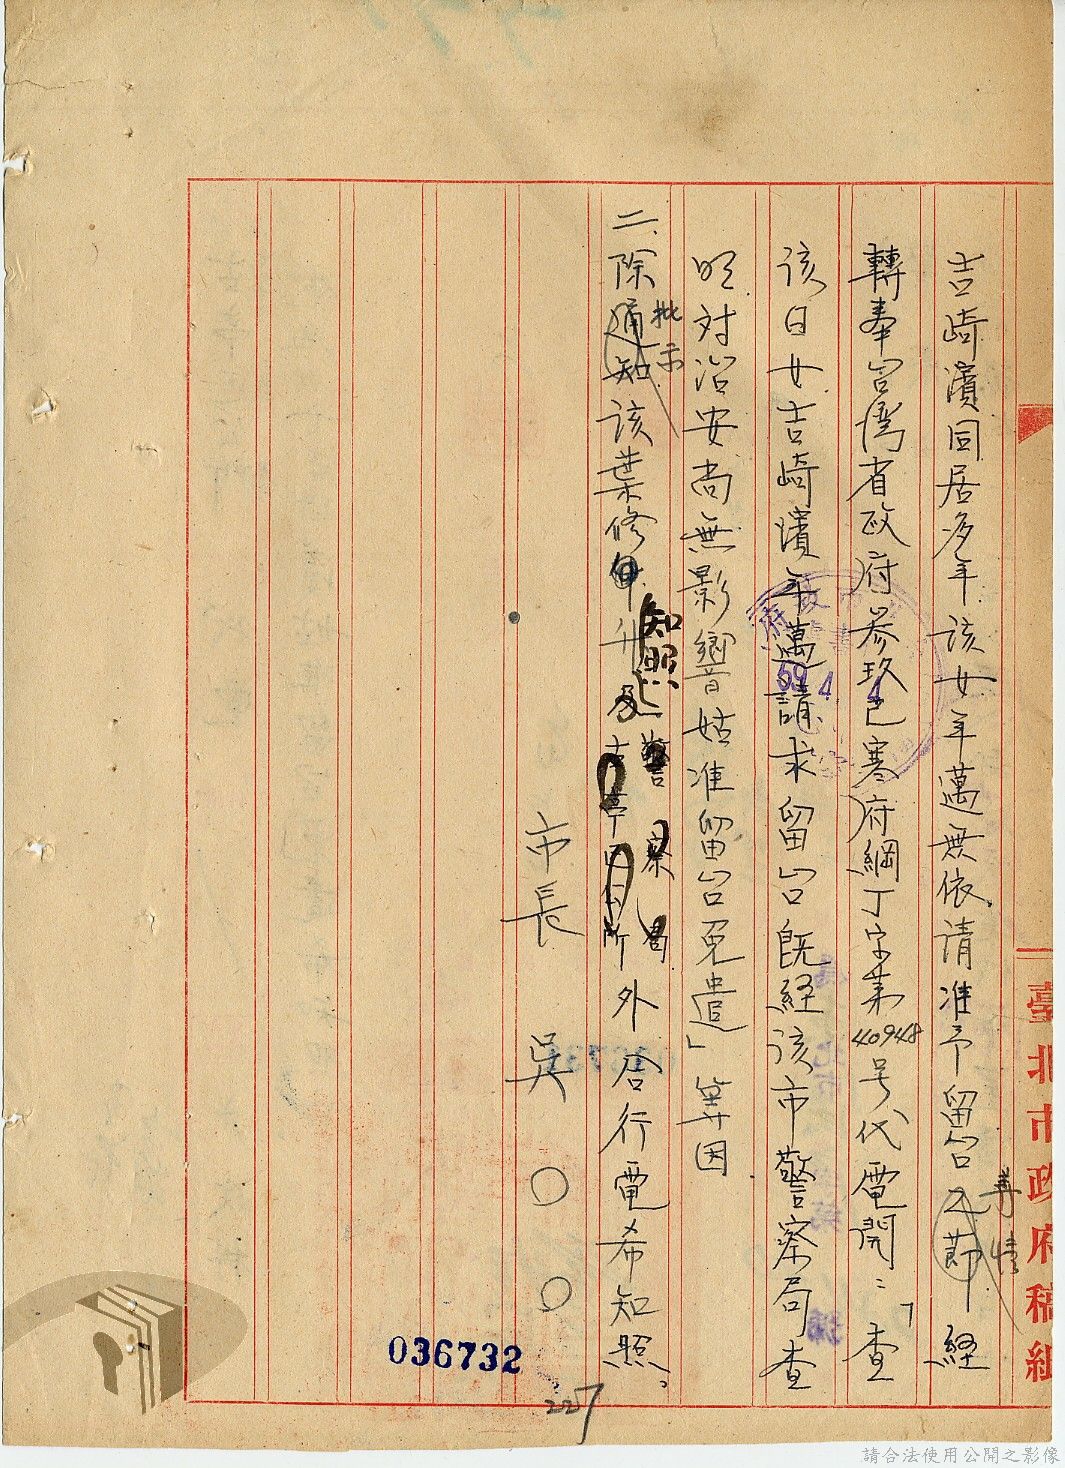 臺北市政府稿紙
吉崎濱同居多年該女年邁無依請准予留台之節等情經
轉奉台灣省政府叁玖巳寒府綱丁字第40948号代電開：「查
該日女吉崎濱年邁請求留台既経該市警察局查
明対治安尚無影響姑准留台免遣」等因
二、除通知批示該葉修升知照及警察局外合行電希知照。
市長 吳○○
036732
227
39 4 4
請合法使用公開之影像